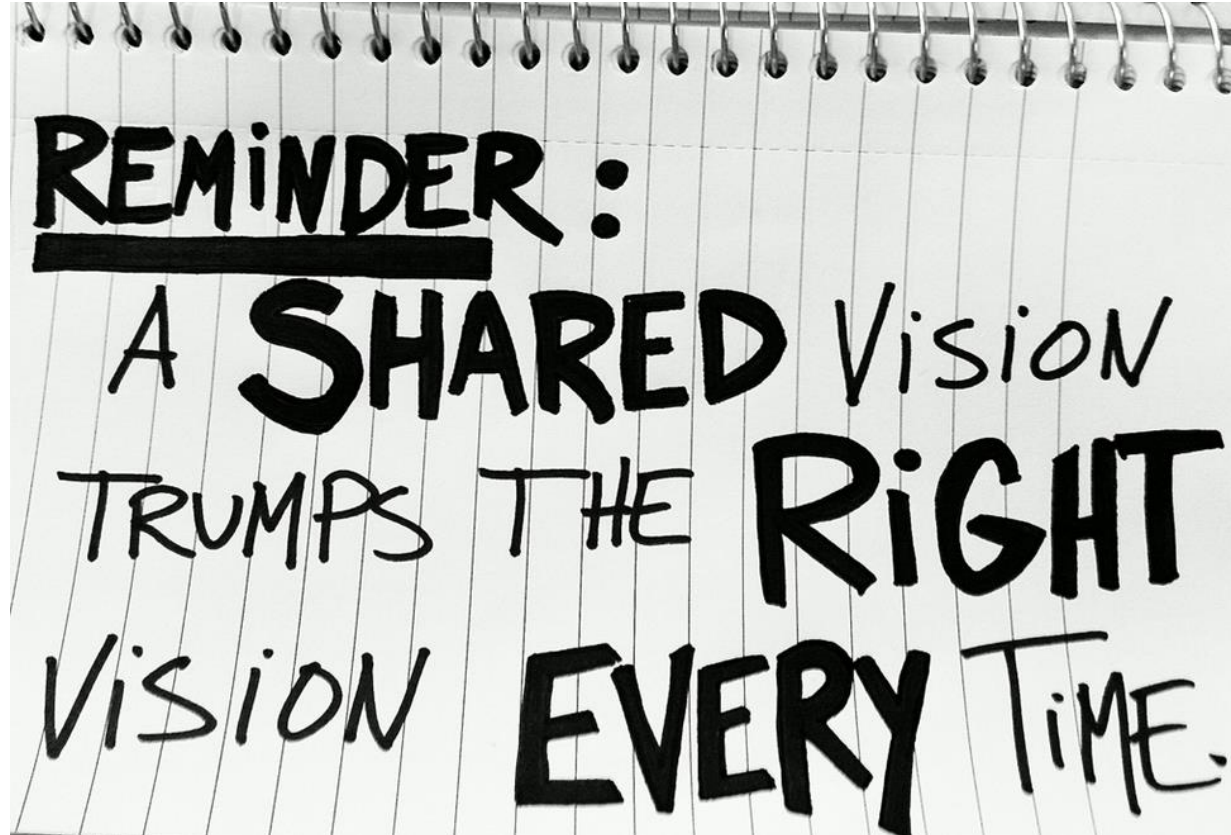 REMiNDER:
A SHARED ViSiON
TRUMPS THE RiGHT
ViSiON EVERY TiME.